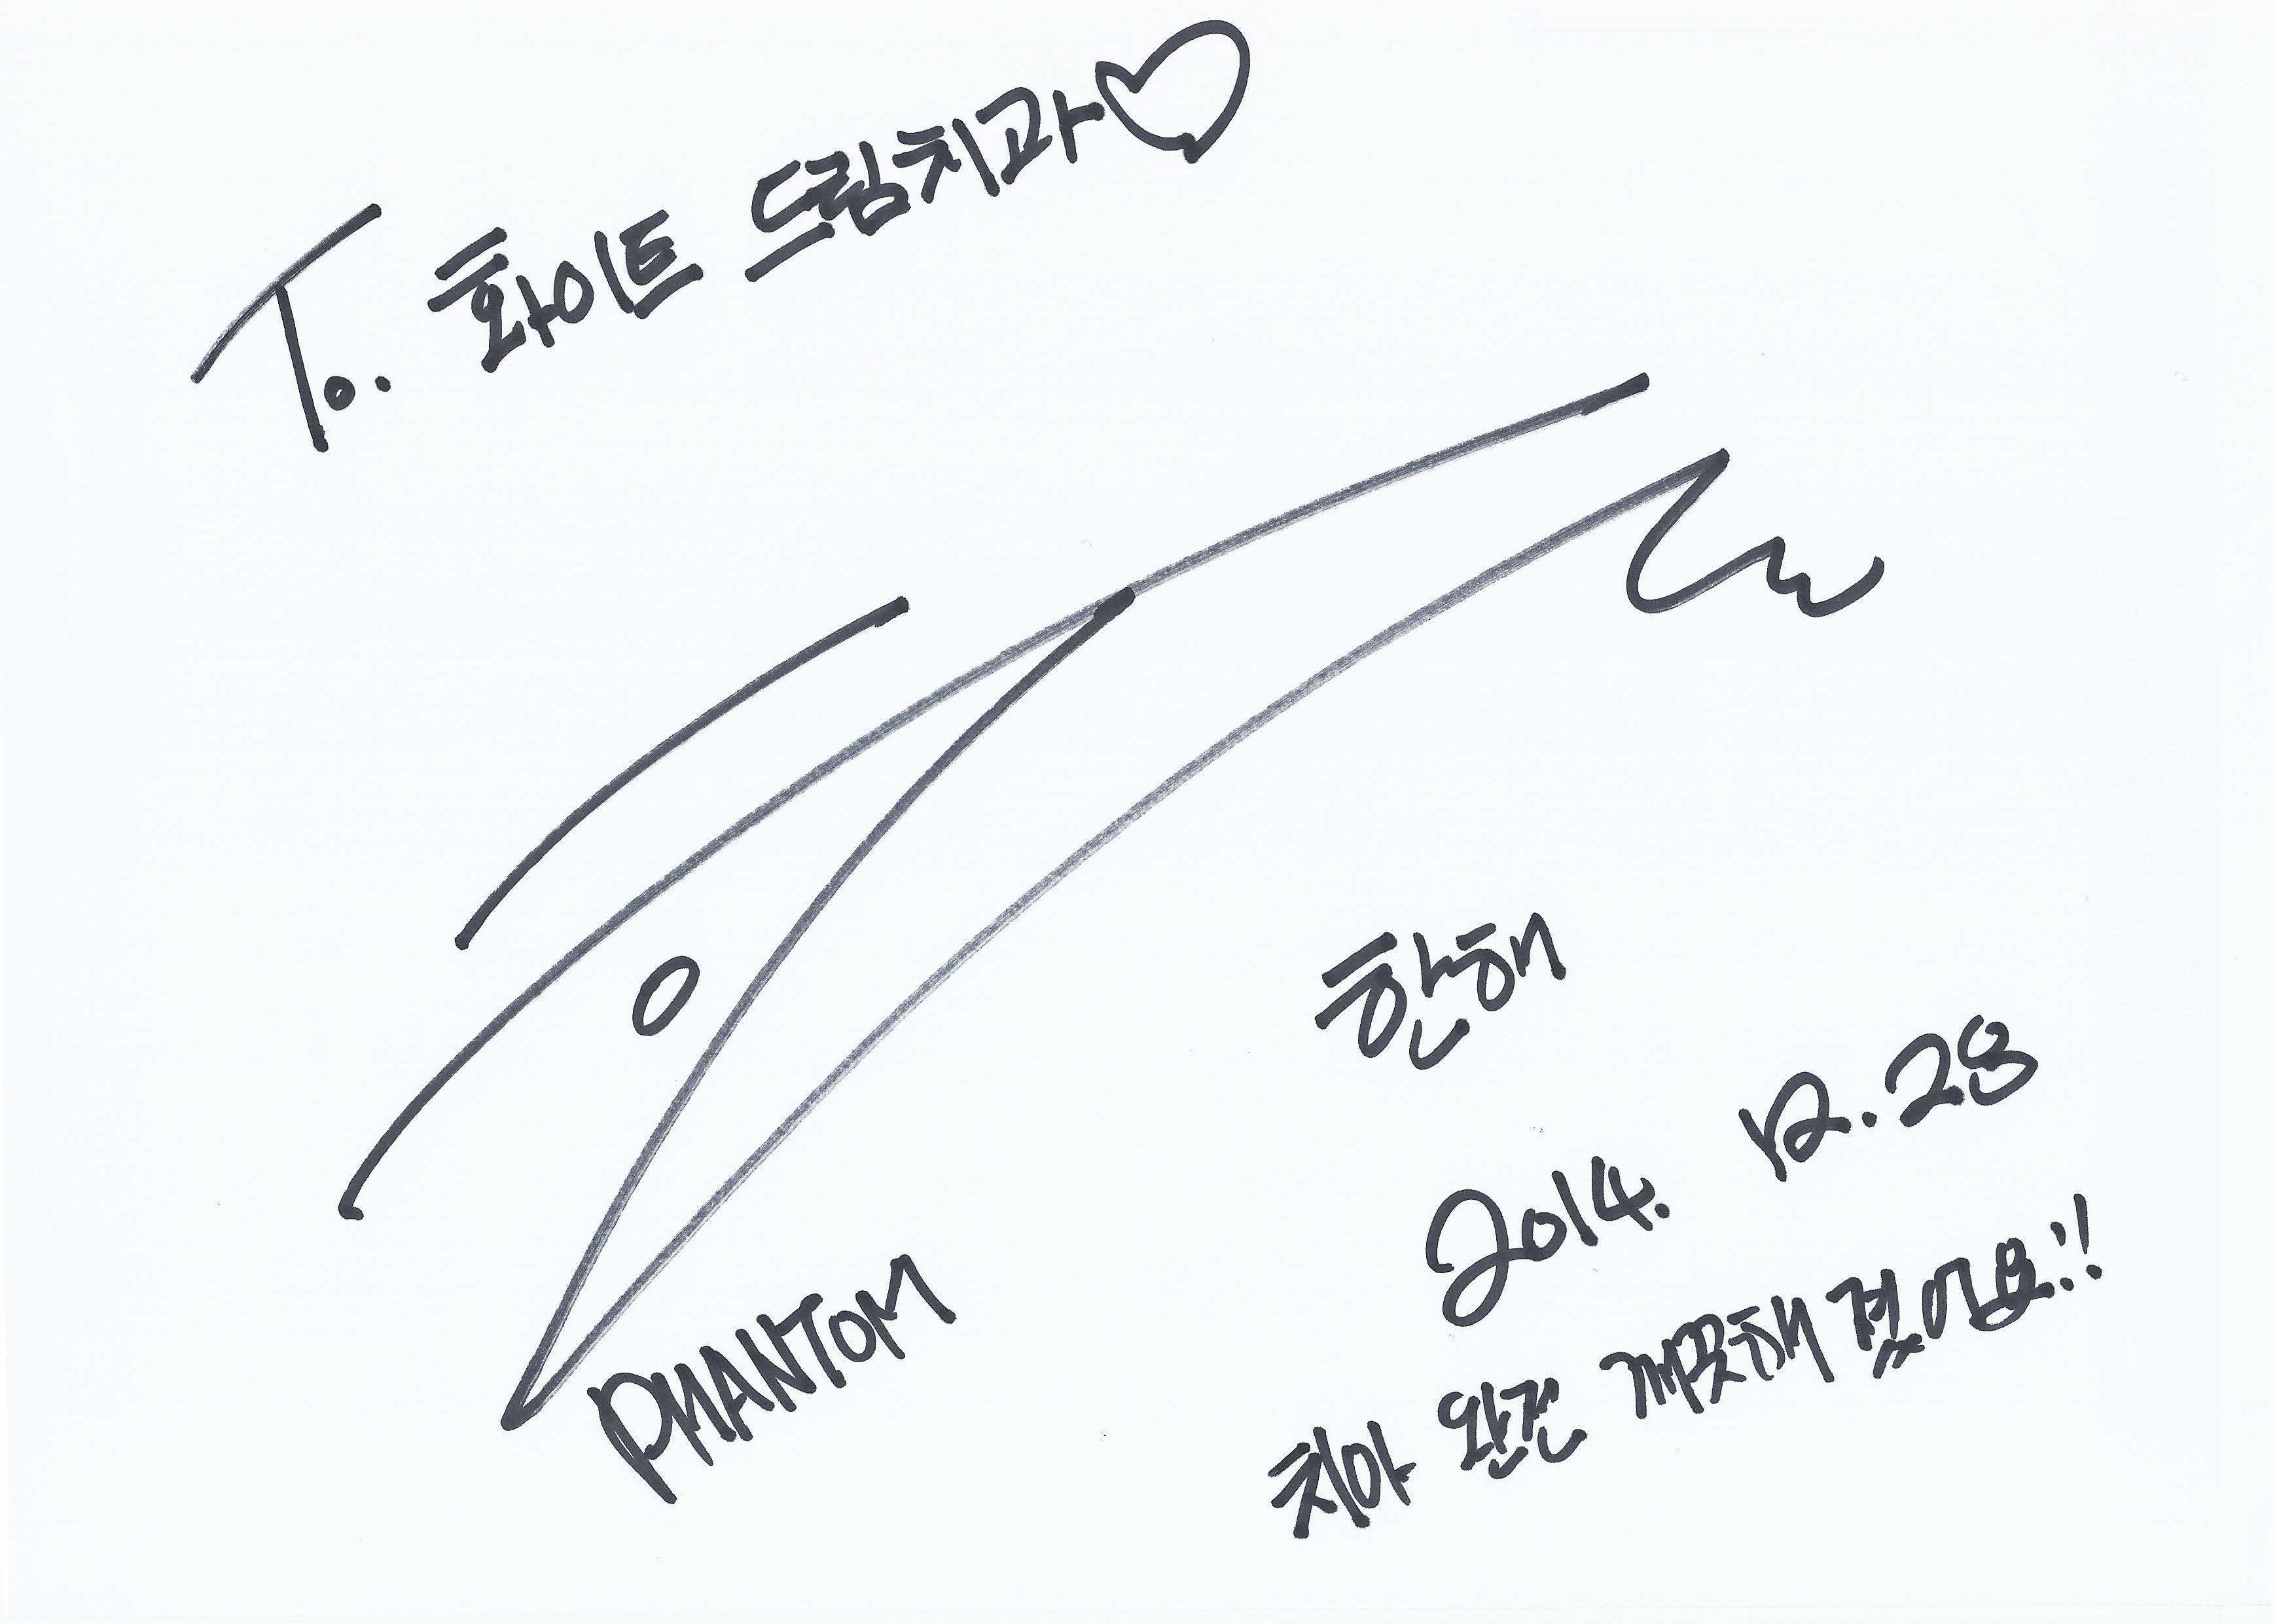 To. 화이트 드림치과♡
한해
2014. 12. 28
PHANTOM
치아 완전 깨끗해졌어요!!